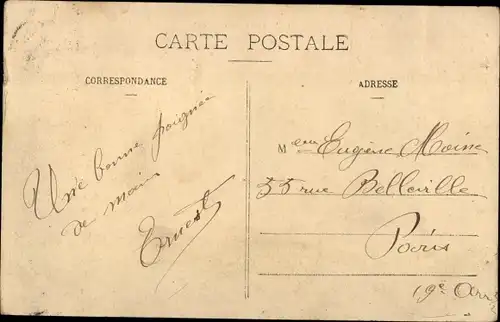 CARTE POSTALE
CORRESPONDANCE
Une bonne poignée
de main
Ernest
ADRESSE
Meur Eugène Moine
55 rue Belleville
Paris
19e Arr